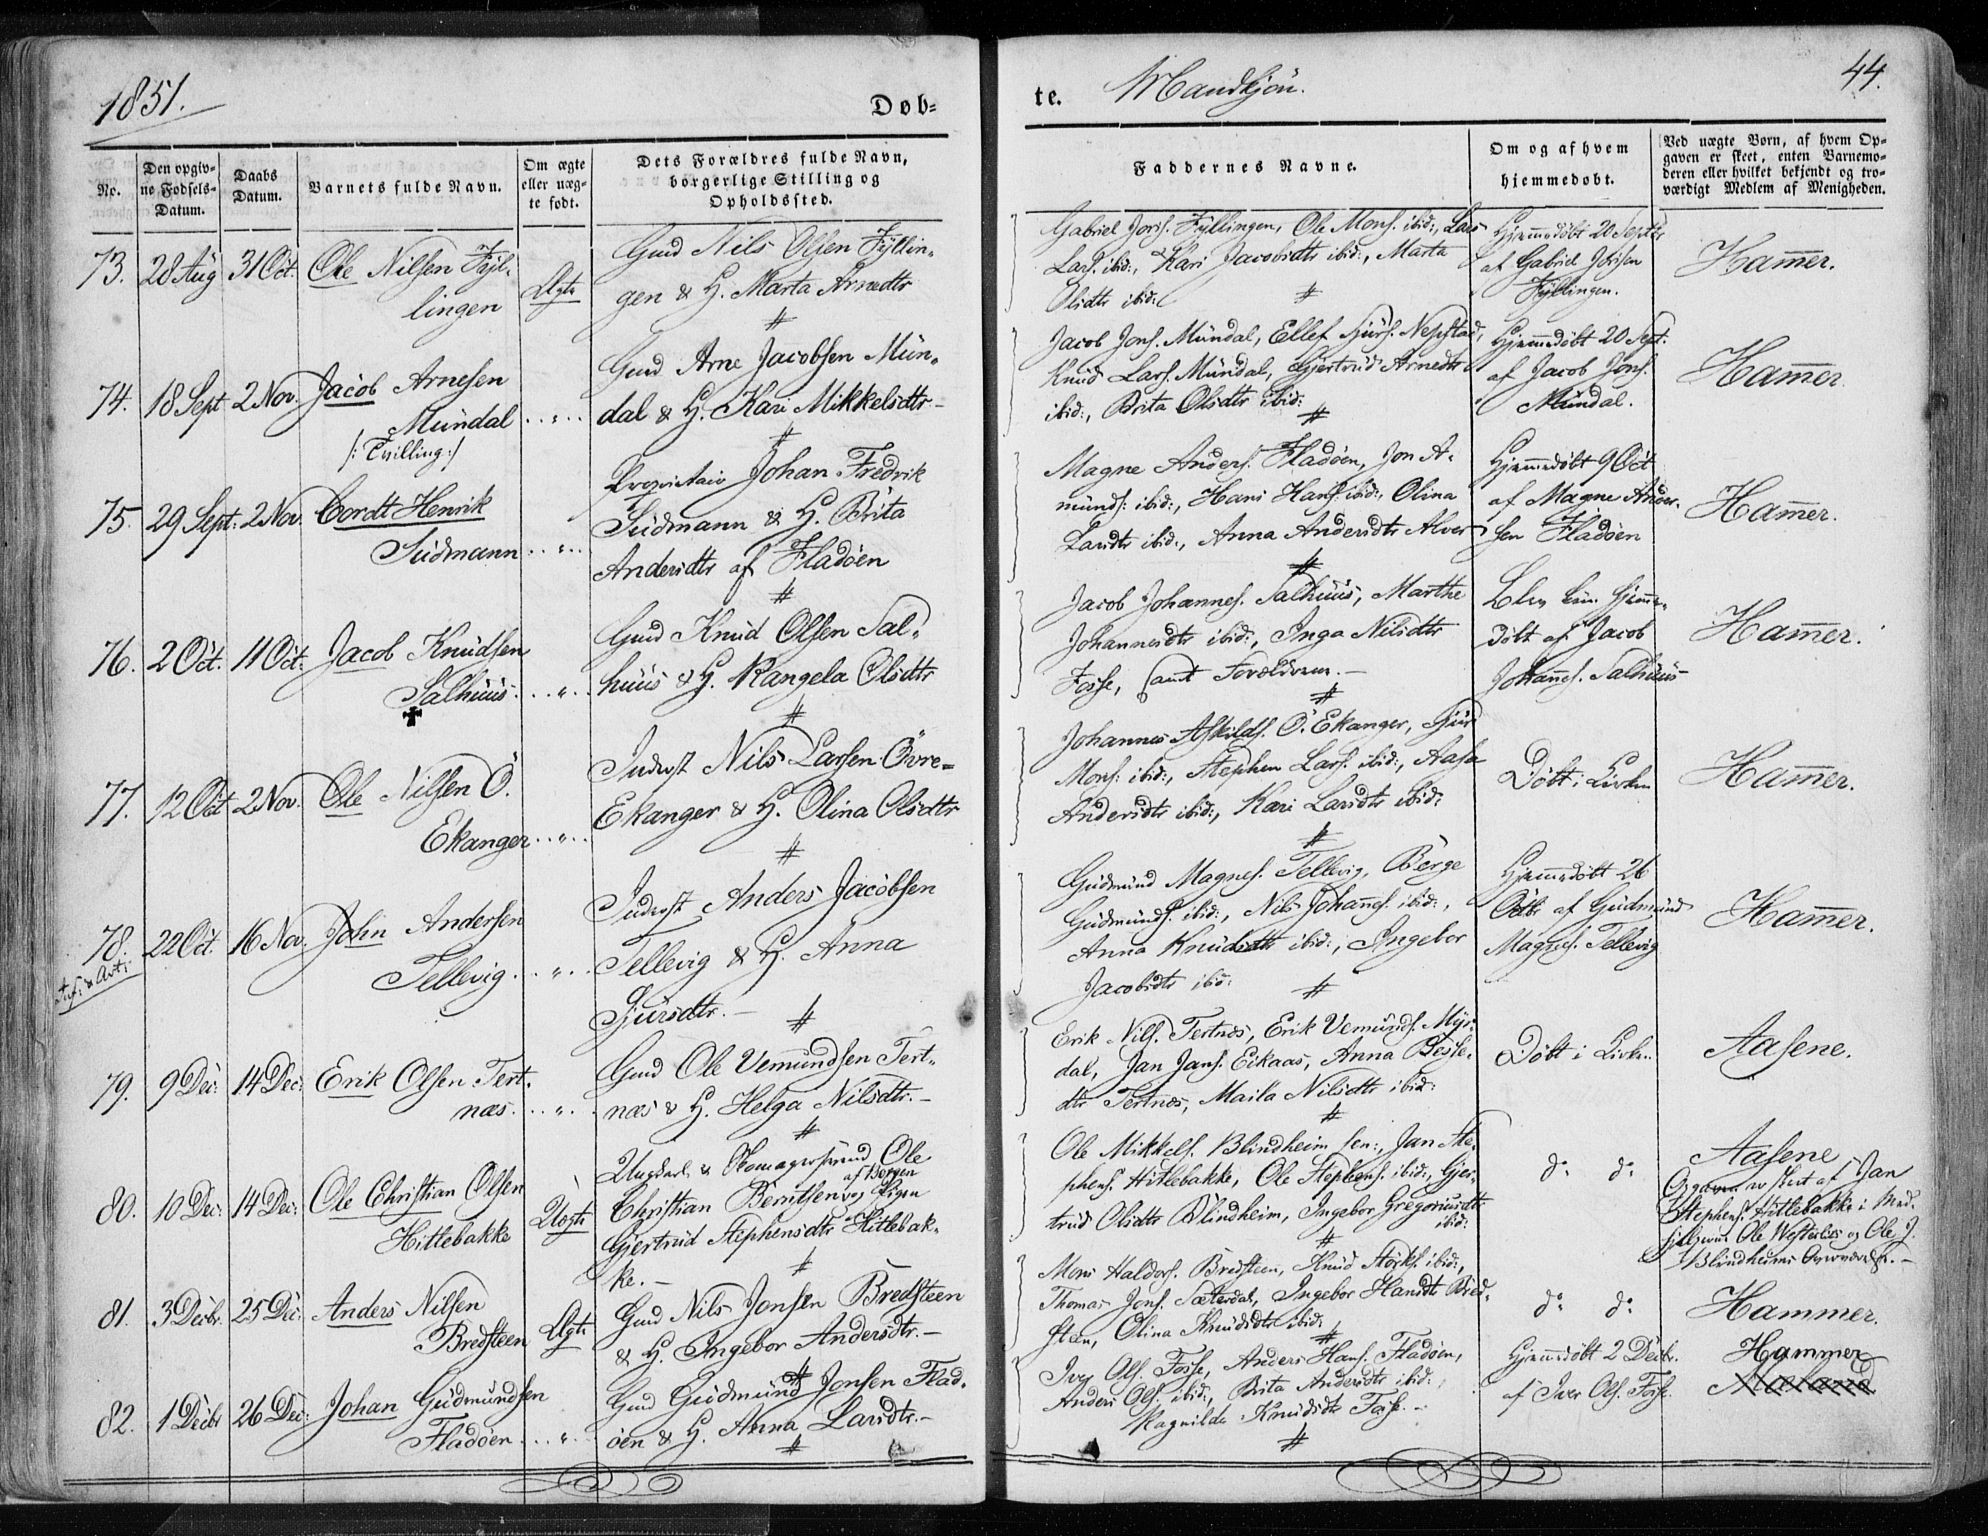 1851.
Døb=
te.
Mandkjön.
44.
No.
Den opgiv-
ne Fødsels-
Datum.
Daabs
Datum.
Barnets fulde Navn.
Om ægte
eller uæg-
te født.
Dets Forældres fulde Navn,
borgerlige Stilling og
Opholdssted.
Faddernes Navne.
Om og af hvem
hjemmedøbt.
Ved uægte Børn, af hvem Op-
gaven er skeet, enten Barnemo-
deren eller hvilket bekjendt og tro-
værdigt Medlem af Menigheden.
73. 28 Aug 31 Oct. Ole Nilsen Fyl-
lingen
Ægte
Gmd Nils Olsen Fyllin-
gen & H. Marta Arnedtr
Gabriel Joris. Fyllingen, Ole Mons. ibid:, Lars
Lars. ibid:, Kari Jacobsdtr ibid:, Marta
Olsdtr ibid:
Hjemmedöbt 20 Septbr
af Gabriel Jörisen
Fyllingen.
Hamer.
74. 18 Sept 2 Nov. Jacob Arnesen
Mundal
/: Tvilling :/
Gmd Arne Jacobsen Mun-
dal & H. Kari Mikkelsdtr
Jacob Jons. Mundal, Ellef Sjurs. Nepstad,
Knud Lars. Mundal, Gjertrud Arnedtr
ibid:, Brita Olsdtr ibid:
Hjemmedöbt 20 Sept.
af Jacob Jons.
Mundal.
Hamer
75. 29 Sept: 2 Nov. Cordt Henrik
Sudmann
Proprietair Johan Fredrik
Sudmann & H. Brita
Andersdtr af Fladöen
Magne Anders. Fladöen, Jon A-
munds. ibid:, Hans Hans. ibid:, Olina
Larsdtr ibid:, Anna Andersdtr Alver
Hjemmedöbt 9 Oct
af Magne Ander-
sen Fladöen
Hamer.
76. 2 Oct. 11 Oct. Jacob Knudsen
Salhuus
Gmd Knud Olsen Sal-
huus & H. Rangela Olsdtr
Jacob Johannes. Salhuus, Marthe
Johannesdtr ibid:, Inga Nilsdtr
Fosse, samt Forældrene.
Blev kun hjemme-
döbt af Jacob
Johannes. Salhuus
Hamer.
77. 12 Oct 2 Nov. Ole Nilsen Ö.
Ekanger
Inderst Nils Larsen Övre=
Ekanger & H. Olina Olsdtr
Johannes Askilds. Ö. Ekanger, Sjur
Mons. ibid:, Stephen Lars. ibid:, Aasa
Andersdtr ibid:, Kari Larsdtr ibid:
Döbt i Kirken
Hamer.
78. 22 Oct. 16 Nov. John Andersen
Tellevig
Inderst Anders Jacobsen
Tellevig & H. Anna
Sjursdtr.
Gudmund Magnes. Tellevig, Börge
Gudmunds. ibid:, Nils Johannes. ibid:,
Anna Knudsdtr ibid:, Ingebor
Jacobsdtr ibid:
Hjemmedöbt 26
Octbr af Gudmund
Magnes. Tellevig
Hamer.
79. 9 Dec: 14 Dec: Erik Olsen Tert-
næs
Gmd Ole Vemundsen Tert-
næs & H. Helga Nilsdtr.
Erik Nils. Tertnæs, Erik Vemunds. Myr-
dal, Jan Jans. Eikaas, Anna
dtr Tertnæs, Maila Nilsdtr ibid:
Döbt i Kirken
Aasene.
80. 10 Dec: 14 Dec: Ole Christian Olsen
Hitlebakke
Uægte
Ungkarl & Skomagersvend Ole
Christian Berntsen af Bergen og Pigen
Gjertrud Stephensdtr Hitlebak-
ke.
Ole Mikkels. Blindheim sen:, Jan Ste-
phens. Hitlebakke, Ole Stephens. ibid:, Gjer-
trud Olsdtr Blindheim, Ingebor Gregoriusdtr
ibid:
do do
Aasene
Opgaven er skeet af Jan
Stephens. Hitlebakke i Med-
Ole og Ole J.
Blindheims
81. 3 Decbr. 25 Dec: Anders Nilsen
Bredsteen
Ægte
Gmd Nils Jonsen Bredsteen
& H. Ingebor Andersdtr.
Mons Haldors. Bredsteen, Knud ibid:,
Thomas Jons. Sæterdal, Ingebor Hansdtr Bred-
steen, Olina Knudsdtr ibid:
do do
Hammer.
82. 1 Decbr 26 Dec: Johan Gudmundsen
Fladöen
Gmd Gudmund Jonsen Flad-
öen & H. Anna Larsdtr.
Iver Ols. Fosse, Anders Hans. Fladöen,
Anders Ols. ibid:, Brita Andersdtr ibid:,
Ragnilda Knudsdtr Fosse.
Hjemmedöbt 2 Decbr.
af Iver Ols. Fosse.
Hammer